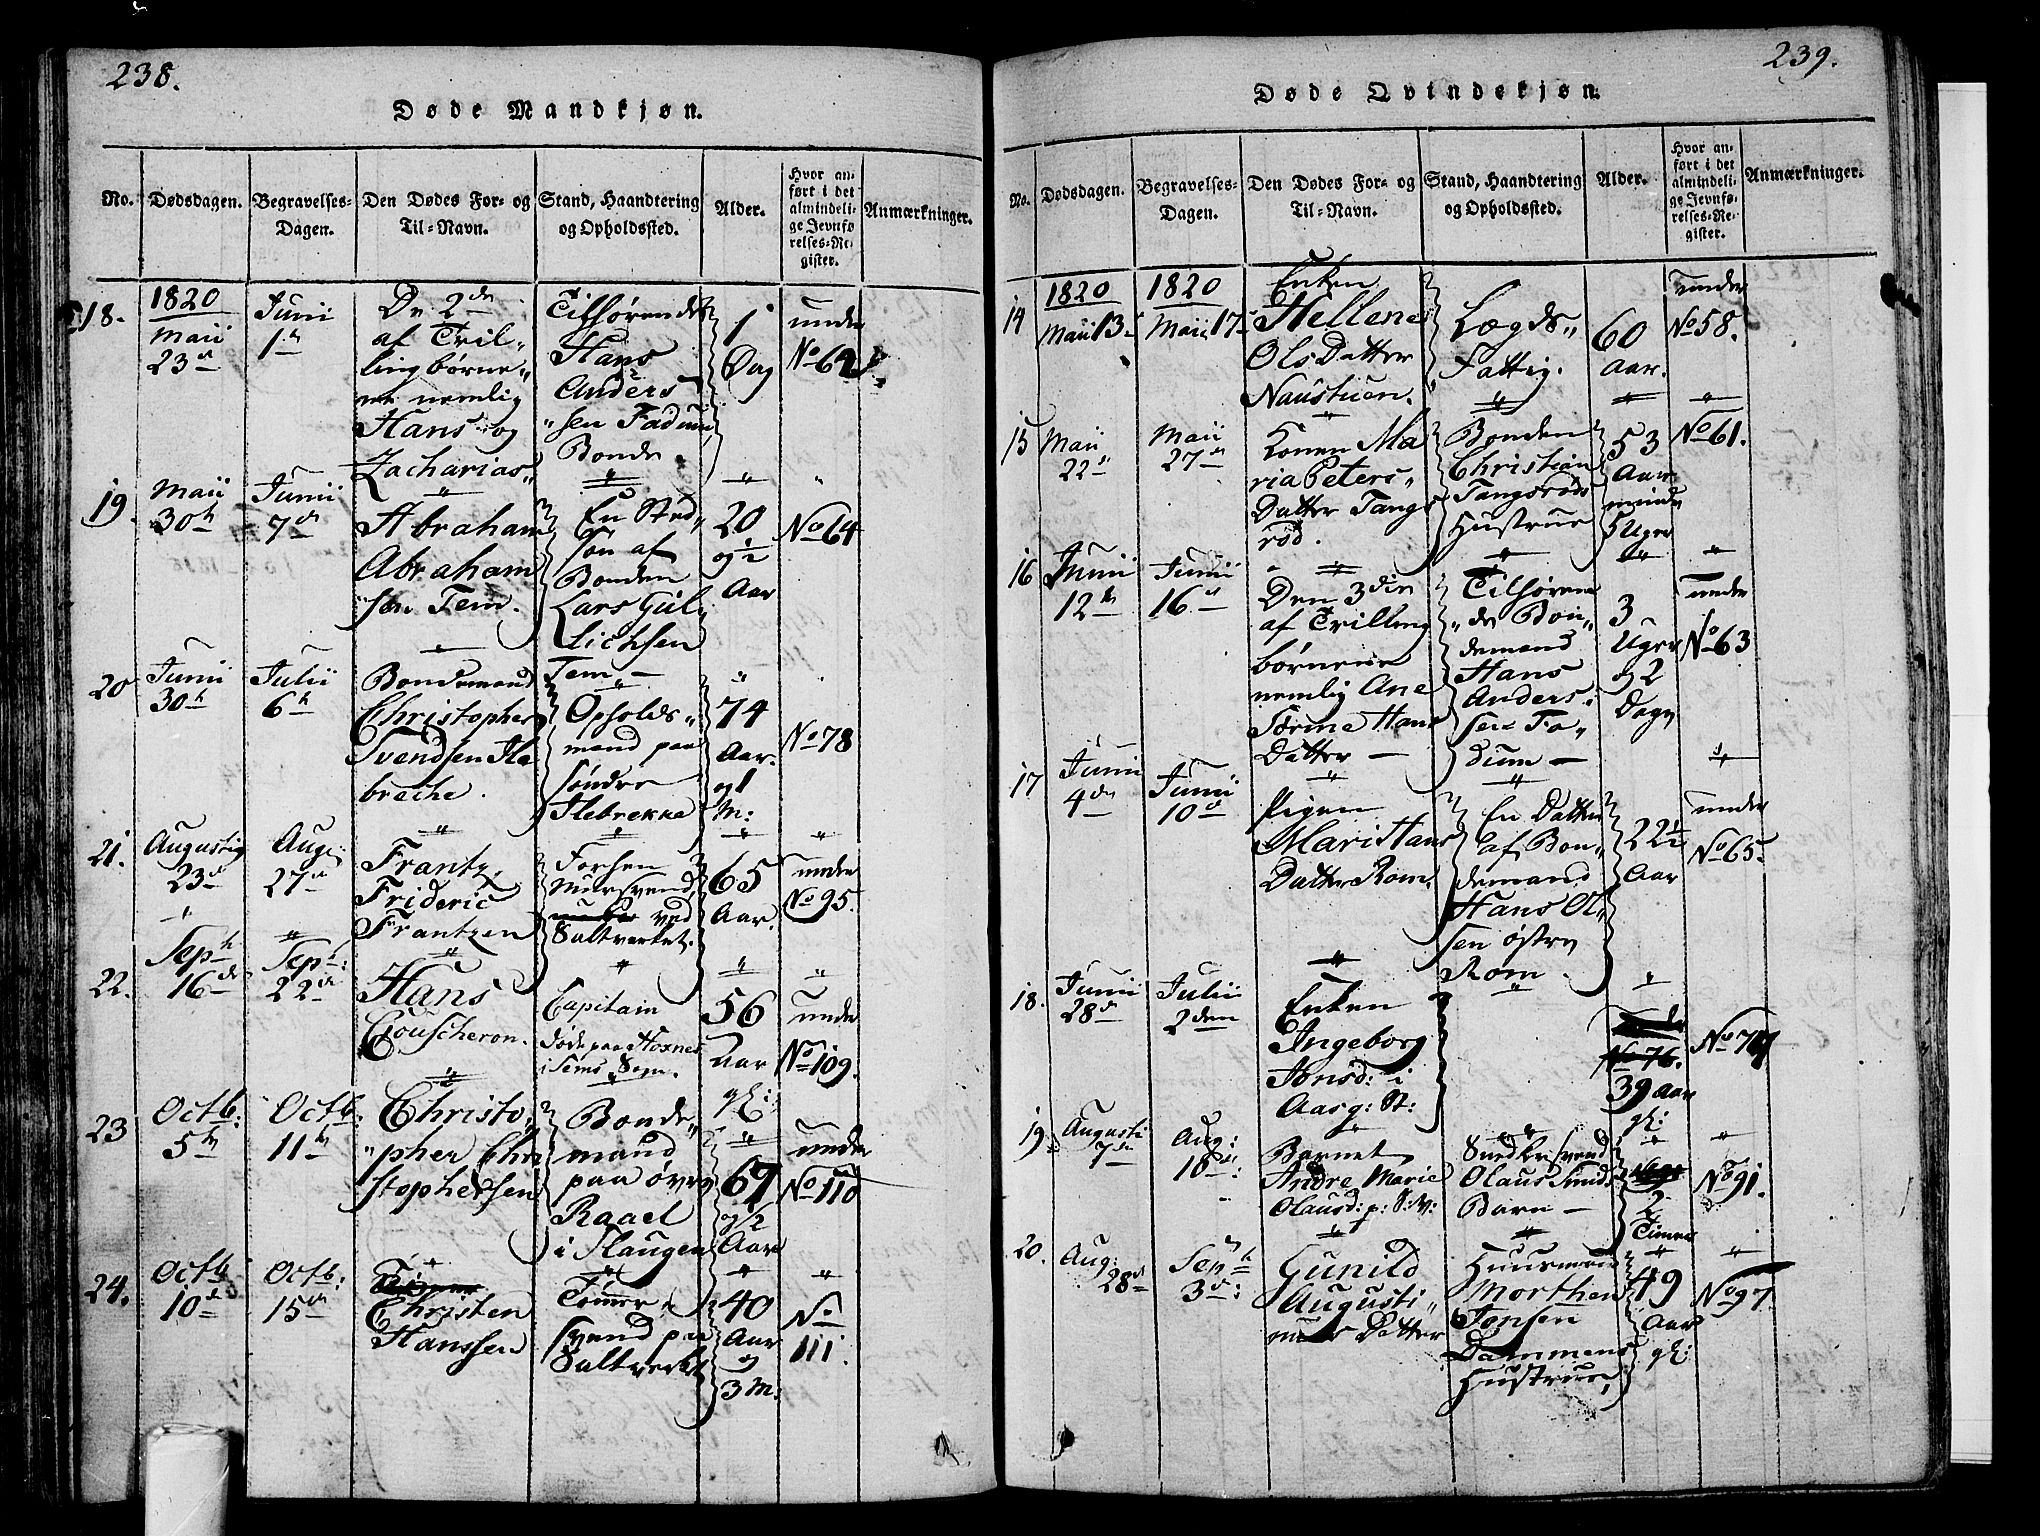 238.
Døde Mandkjøn.
No.
Dødsdagen.
Begravelses-
Dagen.
Den Dødes For- og
Til-Navn.
Stand, Haandtering
og Opholdssted.
Alder.
Hvor an-
ført i det
almindeli-
ge Jevnfø-
relses-Re-
gister.
Anmærkninger.
18.
1820
Maii
23d
Juni
1te
De 2de
af Tvil-
lingbørne-
ne nemlig
Hans og
Zacharias
Tilhørende
Hans
Anders
sen Fadum
Bonde
1
Dag
under
No 62
19.
Maii
30te
Junii
7de
Abraham
Abraham
sen Tem.
En Sted-
søn af
Bonden
Lars Gul-
lichsen
Tem
20
og ½
Aar
No 64
20
Junii
30te
Julii
6te
Bondemand
Christopher
Svendsen Ile
breche.
Opholds-
mand paa
søndre
Ilebrekke
74
Aar.
og 1
M:
No 78
21.
Augusti
23d
Aug:
27de
Frantz
Frideric
Frantzen
Forhen
Mursvend
ved
Saltverket.
65
Aar.
under
No 95.
22.
Sept
16de
Sept:
22de
Hans
Couscheron.
Capitain
døde paa Hoxnes
i Sems Sogn.
56
Aar
gl:
under
No 109.
23
Octb:
5te
Octb:
11te
Christo-
pher Chri
stophersen
Bonde-
mand
paa øvre
Raael
i Slaugen
67
½
Aar
under
No 110
24.
Octb
10de
Octb:
15de
Christen
Hanssen
Tømmer-
svend paa
Saltverket
40
Aar
og
3 M:
No
111.
239.
Døde Qvindekjøn.
No.
Dødsdagen.
Begravelses-
Dagen.
Den Dødes For- og
Til-Navn.
Stand, Haandtering
og Opholdssted.
Alder.
Hvor an-
ført i det
almindeli-
ge Jevnfø-
relses-Re-
gister.
Anmærkninger.
14
1820
Maii 13
1820
Maii 17
Enken
Hellene
Ols Datter
Naustuen.
Lægds-
Fattig.
60
Aar.
under
No 58.
15
Maii
22
Maii
27de
Konen Ma
ria Peters-
Datter Tangs
rød.
Bonden
Christian
Tangsrøds
Hustrue
53
Aar
mindre
5 Uger
No 61.
16
Junii
12te
Junii
16de
Den 3die
af Trilling
børnene
nemlig Ane
Sørine Hans
Datter
Tilhøren-
de Bon-
demand
Hans
Anders-
sen Fa-
dum
3
Uger
og 2
Dage
under
No 63
17
Junii
4de
Junii
10de
Pigen
Mari Hans
Datter Rom.
En Datter
af Bon-
demand
Hans Ol-
sen østre
Rom.
22½
Aar
under
No 65.
18.
Junii
28de
Julii
2den
Enken
Ingeborg
Jonsd: i
Aasg: St:
under
No 76.
39 Aar
gl:
No 77
19.
Augusti
7de
Aug:
10de:
Barnet
Andre Marie
Olausd: p: S: V:
Smedesvend
Olaus Smids
Barn
2
Timer
No 91.
20.
Aug:
28de
Sept
3de:
Gunild
Augusti-
nus Datter
Huusmand
Morthen
Jonsen
Dammens
Hustrue,
49
Aar
gl:
No 97.